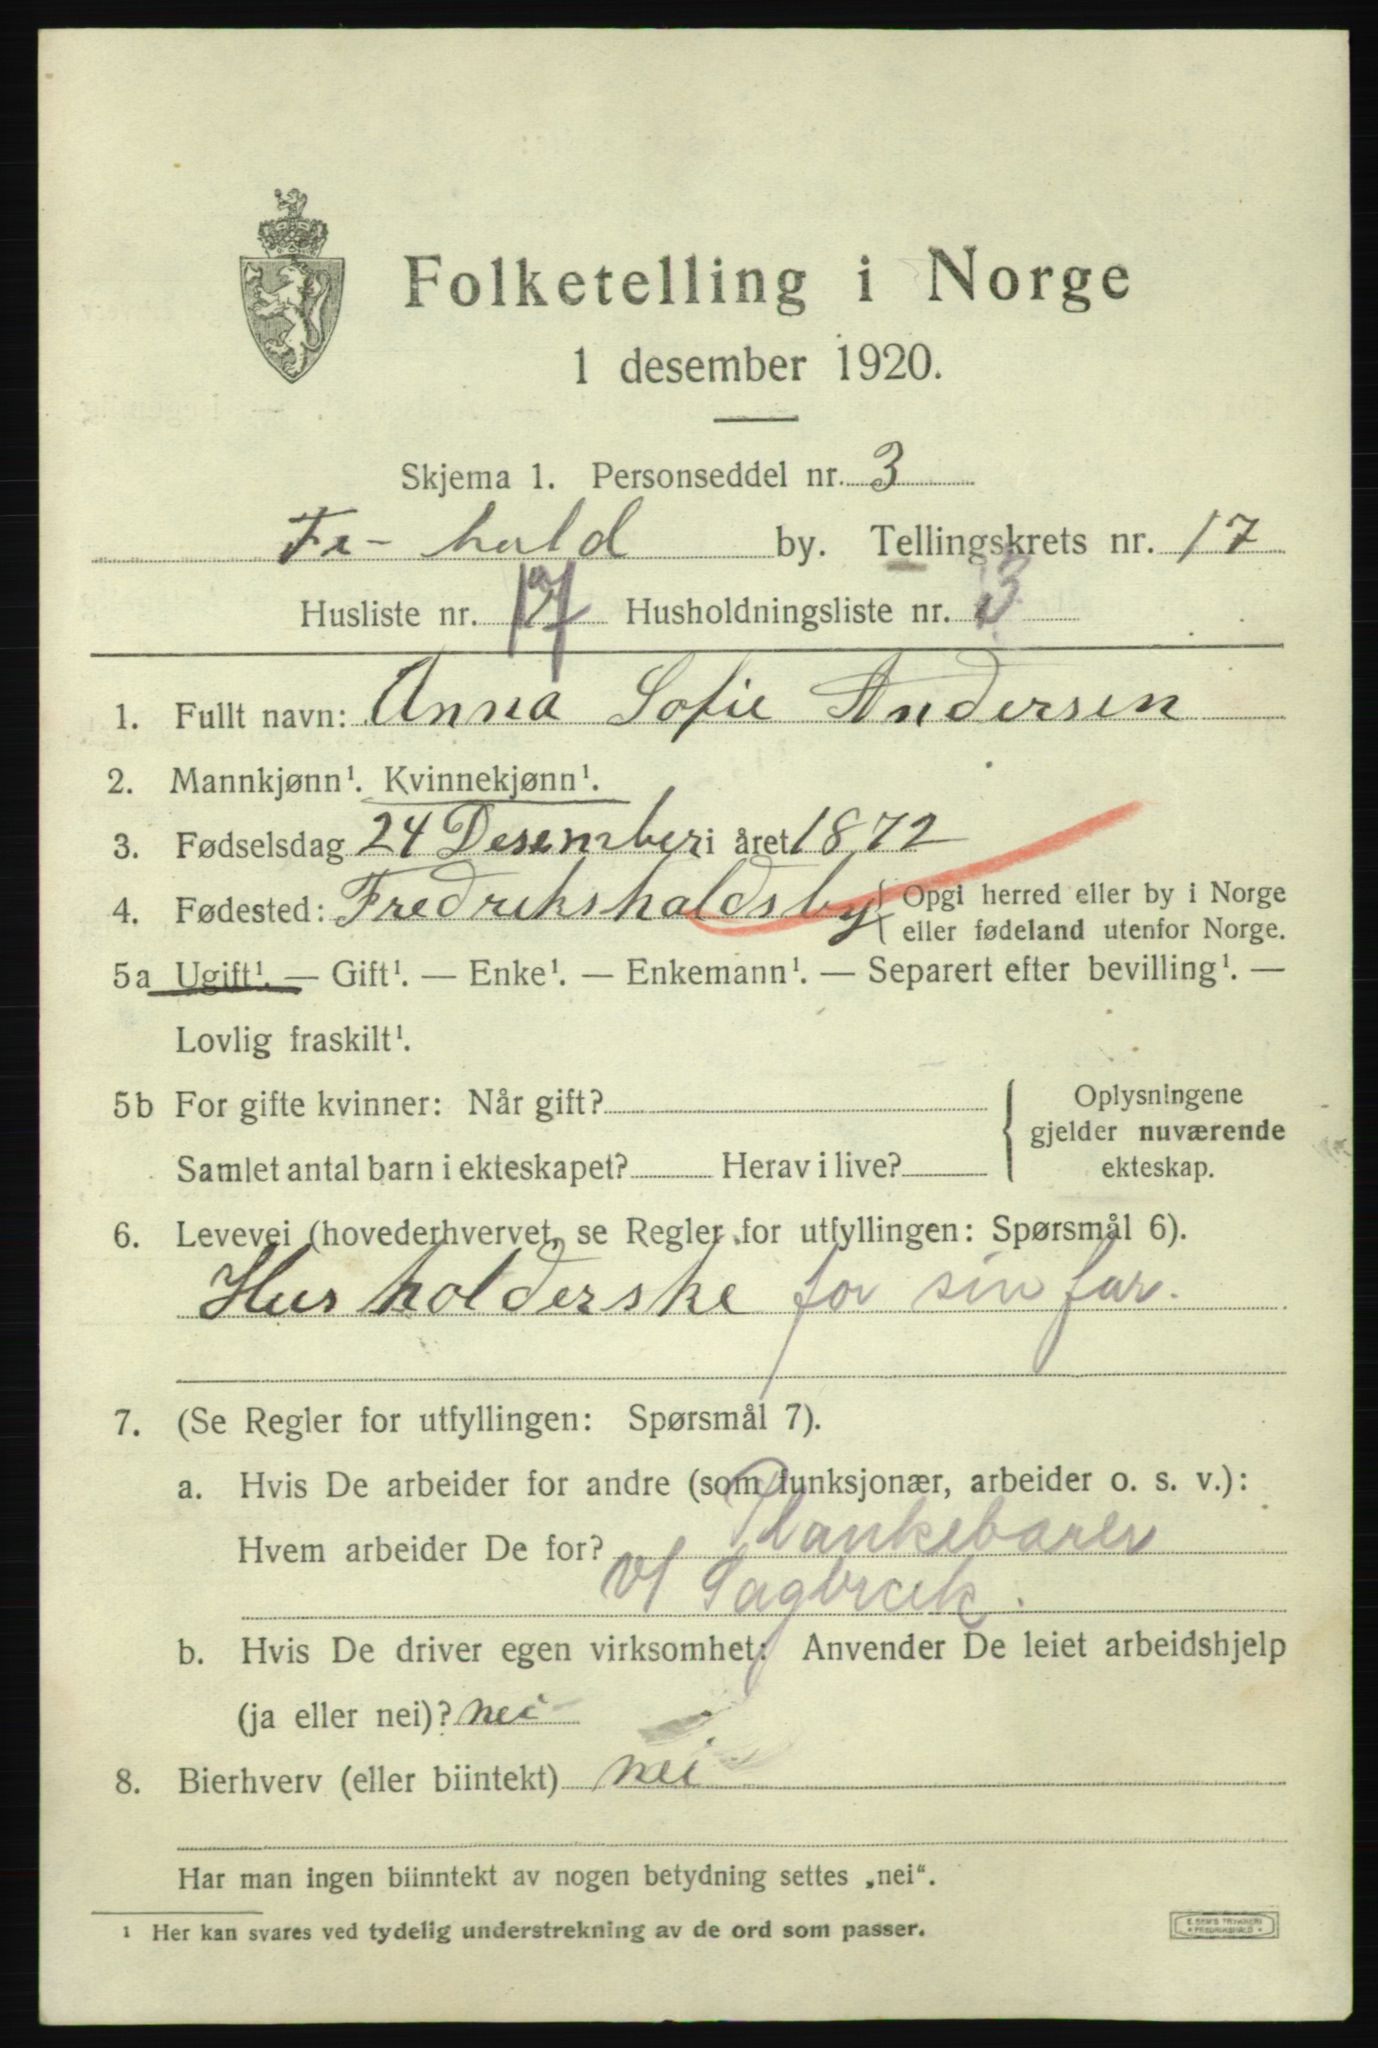 Folketelling i Norge
1 desember 1920.
Skjema 1. Personseddel nr. 3
Fr-hald by. Tellingskrets nr. 17
Husliste nr. 17 Husholdningsliste nr. 3
1. Fullt navn: Anna Sofie Andersen
2. Mannkjønn¹. Kvinnekjønn¹.
3. Fødselsdag 24 Desember i året 1872
4. Fødested: Fredrikshaldsby { Opgi herred eller by i Norge
eller fødeland utenfor Norge.
5a Ugift¹. — Gift¹. — Enke¹. — Enkemann¹. — Separert efter bevilling¹. —
Lovlig fraskilt¹.
5b For gifte kvinner: Når gift? { Oplysningene
gjelder nuværende
Samlet antal barn i ekteskapet? Herav i live? ekteskap.
6. Levevei (hovederhvervet, se Regler for utfyllingen: Spørsmål 6).
Husholderske for sin far.
7. (Se Regler for utfyllingen: Spørsmål 7).
a. Hvis De arbeider for andre (som funksjonær, arbeider o. s. v.):
Hvem arbeider De for? Plankebærer
v/ Sagbruk.
b. Hvis De driver egen virksomhet: Anvender De leiet arbeidshjelp
(ja eller nei)? nei
8. Bierhverv (eller biintekt) nei
Har man ingen biinntekt av nogen betydning settes „nei“.
¹ Her kan svares ved tydelig understrekning av de ord som passer.
E. SEM'S TRYKKERI
FREDRIKSHALD